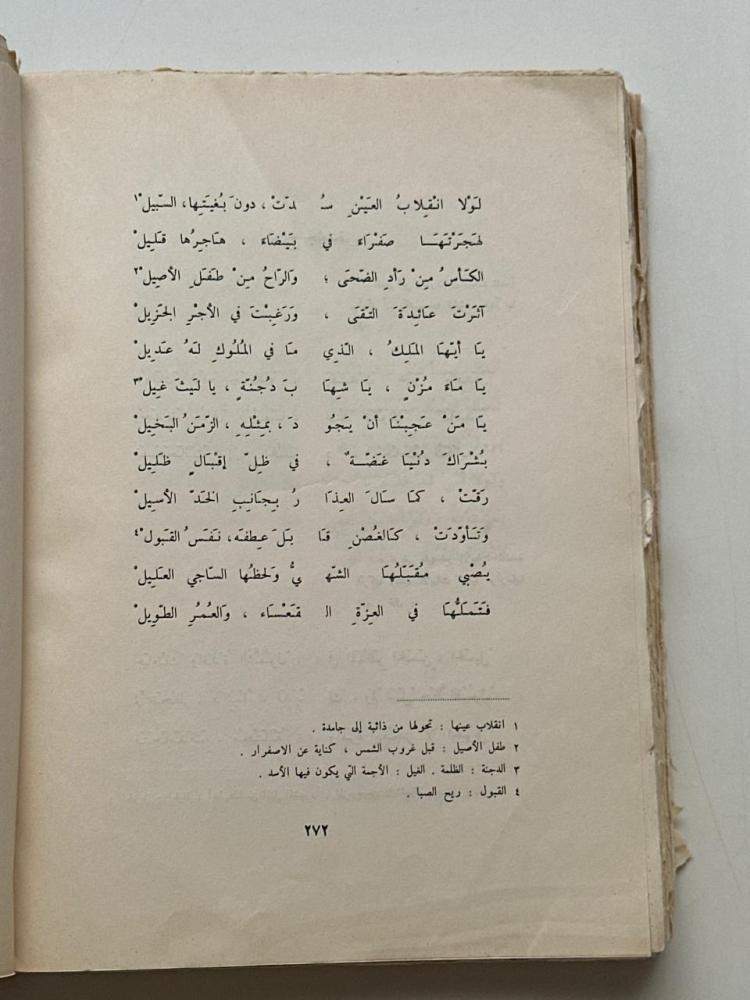 لَوْلا انْقِلابُ العَيْنِ سُدّتْ، دونَ بُغيَتِها، السّبيلْ ١
لهَجَرْتَهَا صَفْرَاء في بَيْضَاء، هَاجِرُها قَليلْ
الكَأسُ مِنْ رَأدِ الضّحَى؛ وَالرّاحُ مِنْ طَفَلِ الأصِيلْ ٢
آثَرْتَ عَائِدَةَ التّقَى، وَرَغِبْتَ في الأجْرِ الجَزِيلْ
يَا أيّهَا المَلِكُ، الّذي مَا في المُلُوكِ لَهُ عَديلْ
يَا مَاءَ مُزْنٍ، يَا شِهَابَ دُجُنّةٍ، يا لَيثَ غِيلْ ٣
يَا مَنْ عَجِبْنَا أنْ يَجُودَ، بمِثْلِهِ، الزّمَنُ البَخيلْ
بُشْرَاكَ دُنْيَا غَضّةٌ، في ظِلّ إقْبَالٍ ظَليلْ
رَقّتْ، كمَا سَالَ العِذَارُ بِجَانِبِ الخَدّ الأسيلْ
وَتَأوّدَتْ، كَالغُصْنِ قَابَلَ عِطفَه، نَفَسُ القَبول ْ٤
يُصْبي مُقَبَّلُهَا الشّهيُّ وَلحظُها السّاجي العَليلْ
فَتَمَلَّهَا في العِزّةِ القَعْسَاء، وَالعُمُرِ الطّوِيلْ
١ انقلاب عينها : تحولها من ذائبة إلى جامدة .
٢ طفل الأصيل : قبل غروب الشمس ، كناية عن الاصفرار .
٣ الدجنة : الظلمة . الغيل : الأجمة التي يكون فيها الأسد .
٤ القبول : ريح الصبا .
٢٧٢